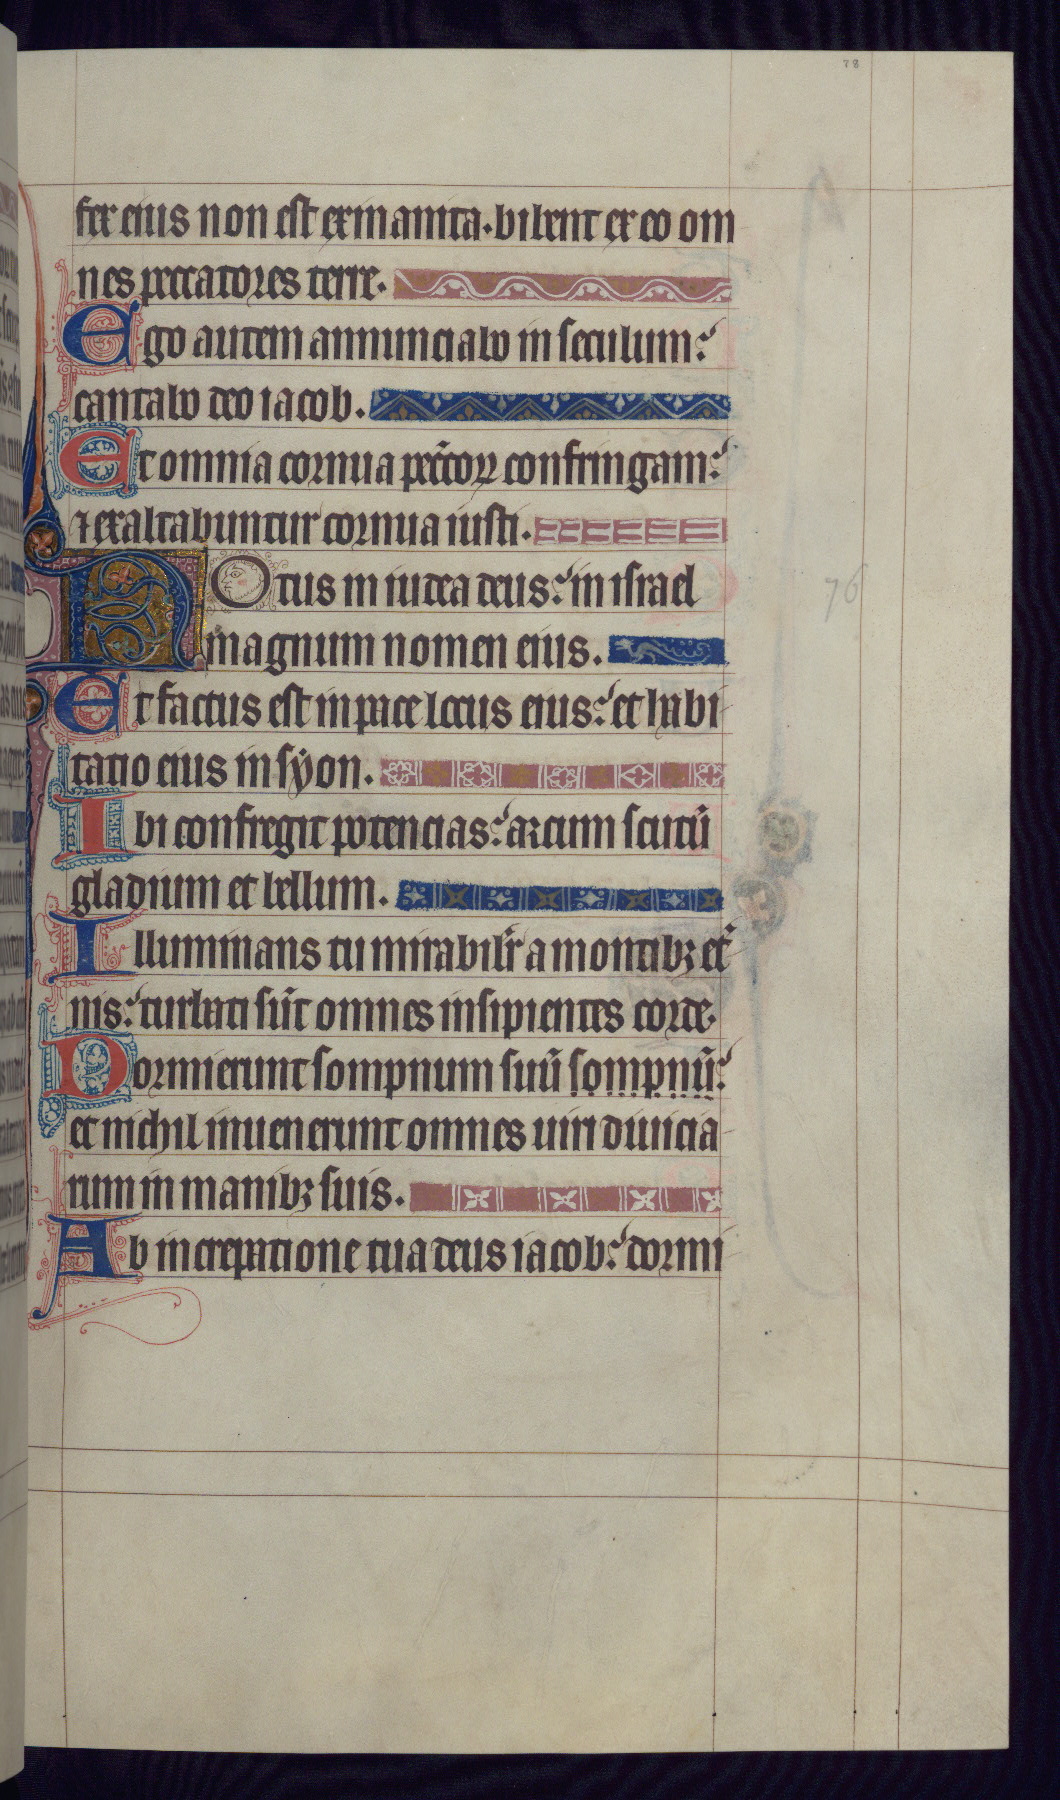 78
fex eius non est exinanita. bibent ex eo om
nes peccatores terre.
Ego autem annunciabo in seculum:
cantabo deo iacob.
Et omnia cornua pecc̄toꝝ confringam:
⁊ exaltabuntur cornua iusti.
NOtus in iudea deus: in israel
magnum nomen eius.
76
Et factus est in pace locus eius: et habi
tatio eius in syon.
Ibi confregit potencias: arcum scutū
gladium et bellum.
Illuminans tu mirabilit̄ a montibꝫ et̄
nis: turbati sūt omnes insipientes corde.
Dormierunt sompnum suū sompnū:
et nichil inuenerunt omnes uiri diuicia
rum in manibꝫ suis.
Ab increpatione tua deus iacob: dormi